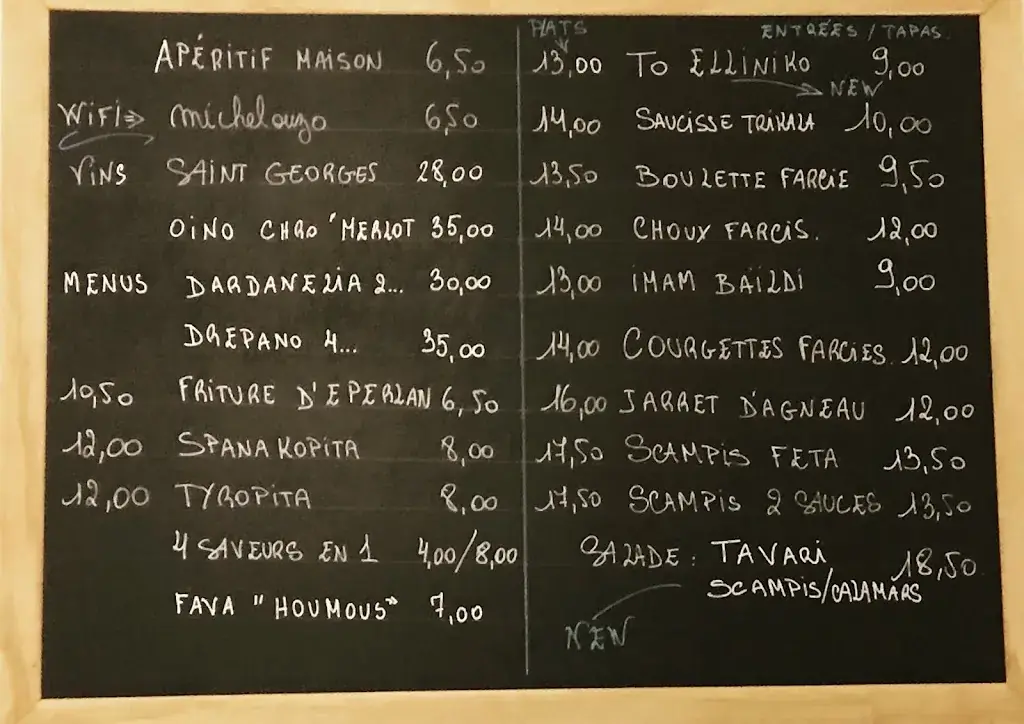 APÉRITIF MAISON 6,50
WIFI => michelouzo 6,50
VINS SAINT GEORGES 28,00
OINO CHRO 'MERLOT 35,00
MENUS DARDANELIA 2... 30,00
DREPANO 4... 35,00
10,50 FRITURE D'EPERLAN 6,50
12,00 SPANAKOPITA 8,00
12,00 TYROPITA 8,00
4 SAVEURS EN 1 4,00/8,00
FAVA "HOUMOUS" 7,00
PLATS ENTRÉES / TAPAS
13,00 TO ELLINIKO 9,00
NEW
14,00 SAUCISSE TRIKALA 10,00
13,50 BOULETTE FARCIE 9,50
14,00 CHOUX FARCIS. 12,00
13,00 IMAM BAÏLDI 9,00
14,00 COURGETTES FARCIES. 12,00
16,00 JARRET D'AGNEAU 12,00
17,50 SCAMPIS FETA 13,50
17,50 SCAMPIS 2 SAUCES 13,50
SALADE : TAVARI 18,50
SCAMPIS/CALAMARS
NEW